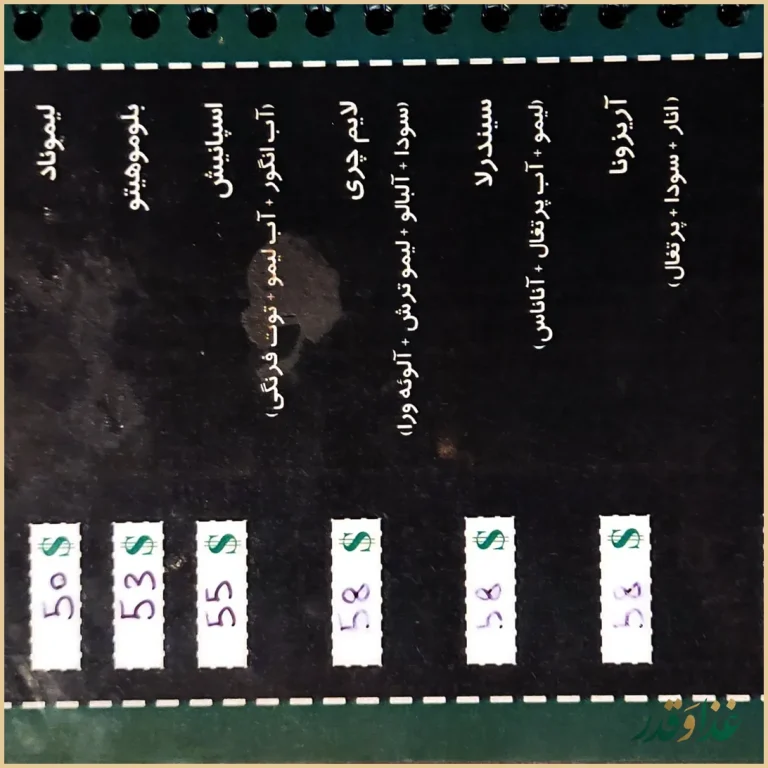 لیموناد
$ 50
بلوموهیتو
$ 53
اسپانیش
$ 55
(آب انگور + آب لیمو + توت فرنگی)
لایم چری
$ 58
(سودا + آلبالو + لیمو ترش + آلوئه ورا)
سیندرلا
$ 58
(لیمو + آب پرتغال + آناناس)
آریزونا
$ 58
(انار + سودا + پرتغال)
غذا و قدر